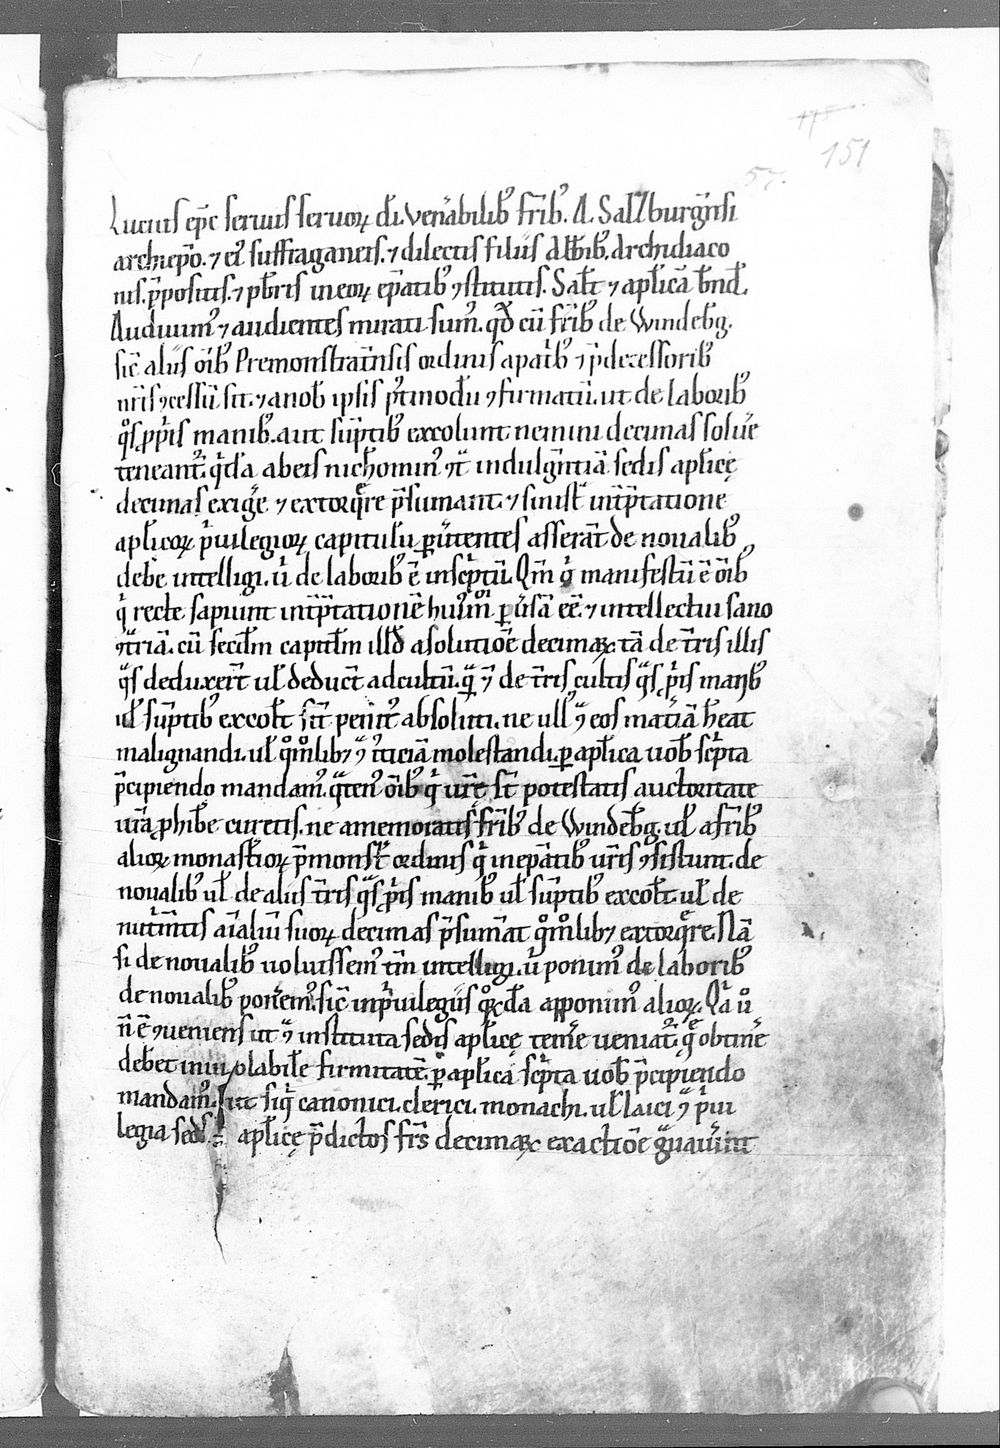 151
57.
Lucius ep̄c seruus seruoꝝ dī. ven̄abilibꝰ fr̄ibꝰ. A. Salzburgn̄si
archiep̄o. ⁊ eiꝰ suffraganeis. ⁊ dilectis filiis abb̄ibꝰ. archidiaco
nis. p̄positis. ⁊ p̄bris in eoꝝ ep̄atibꝰ ꝯstitutis. Sal̄t ⁊ apl̄icā b̄nd̄.
Audiuimꝰ ⁊ audientes mirati sumꝰ. qd̄ cū fr̄ibꝰ de Windeb̄g.
sic̄ aliis oīb; Premonstratn̄sis ordinis a patribꝰ ⁊ p̄decessoribꝰ
nr̄is ꝯcessū sit. ⁊ a nob̄ ipsis p̱tmodū ꝯfirmatū. ut de laboribꝰ
qͦs ꝓpriis manibꝰ. aut sūptibꝰ excolunt nemini decimas soluͤe
teneantͬ. qͥdā ab eis nichomīnꝰ ꝯͭ indulgn̄tiā sedis apl̄icę
decimas exigͤe ⁊ extorqͤre p̄sumant. ⁊ sinistͬ int̄p̄tatione
apl̄icoꝝ pͥuilegioꝝ capitulū ꝑuͤtentes asserāt de noualibꝰ
debͤe intelligi. uͥ de laboribꝰ ē inscͥptū. Qm̄ gͥ manifestū ē oīb;
qͥ recte sapiunt int̄p̄tationē huiꝰmoͥ ꝑuͤsā eē. ⁊ intellectui sano
ꝯͭriā. cū secd̄m capitl̄m illd̄ a solutiōe decimaꝝ tā de tͤris illis
qͣs deduxerͭ ul̄ deducͭ ad cultū. qͣ ⁊ de tͤris cultis qͣs ꝓpͥis manibꝰ
ul̄ sūptibꝰ excol̄t sīt penitꝰ absoluti. ne ull̄ ꝯͭ eos mat̄iā h̄eat
malignandi. ul̄ qͦmͦlib; ꝯͭ iꝰticiā molestandi. ꝑ apl̄ica uob̄ scͥpta
p̄cipiendo mandamꝰ. qͣtenꝰ oīb; qͥ ur̄e sͭ potestatis auctoritate
ur̄a ꝓhibe curetis. ne a memoratis fr̄ibꝰ de Windeb̄g. ul̄ a fr̄ibꝰ
alioꝝ monast̄ioꝝ p̄monstͬ ordinis qͥ in ep̄atibꝰ ur̄is ꝯsistunt. de
noualibꝰ ul̄ de aliis tͤris qͣs ꝓpͥis manibꝰ ul̄ sūptibꝰ excol̄t. ul̄ de
nutͥmtis aīaliū suoꝝ decimas p̄sumāt qͦmͦlib; extorqͤre. Nā
si de noualibꝰ uoluissemꝰ tm̄ intelligi. uͥ ponimꝰ de laboribꝰ
de noualibꝰ ponemꝰ. sic̄ in pͥuilegiis qͦꝝdā apponimꝰ alioꝝ. Qͥa uͦ
n̄ ē ꝯueniens ut ꝯͭ instituta sedis apl̄icę temͤe ueniatͬ. qͤ obtinͤe
debet inuiolabilē firmitatē. ꝑ apl̄ica scͥpta uob̄ p̄cipiendo
mandamꝰ. ut siqͥ canonici. clerici. monachi. ul̄ laici ꝯͭ pͥui
legia sedis apl̄icę p̄dictos fr̄s decimaꝝ exactiōe gͣuauint